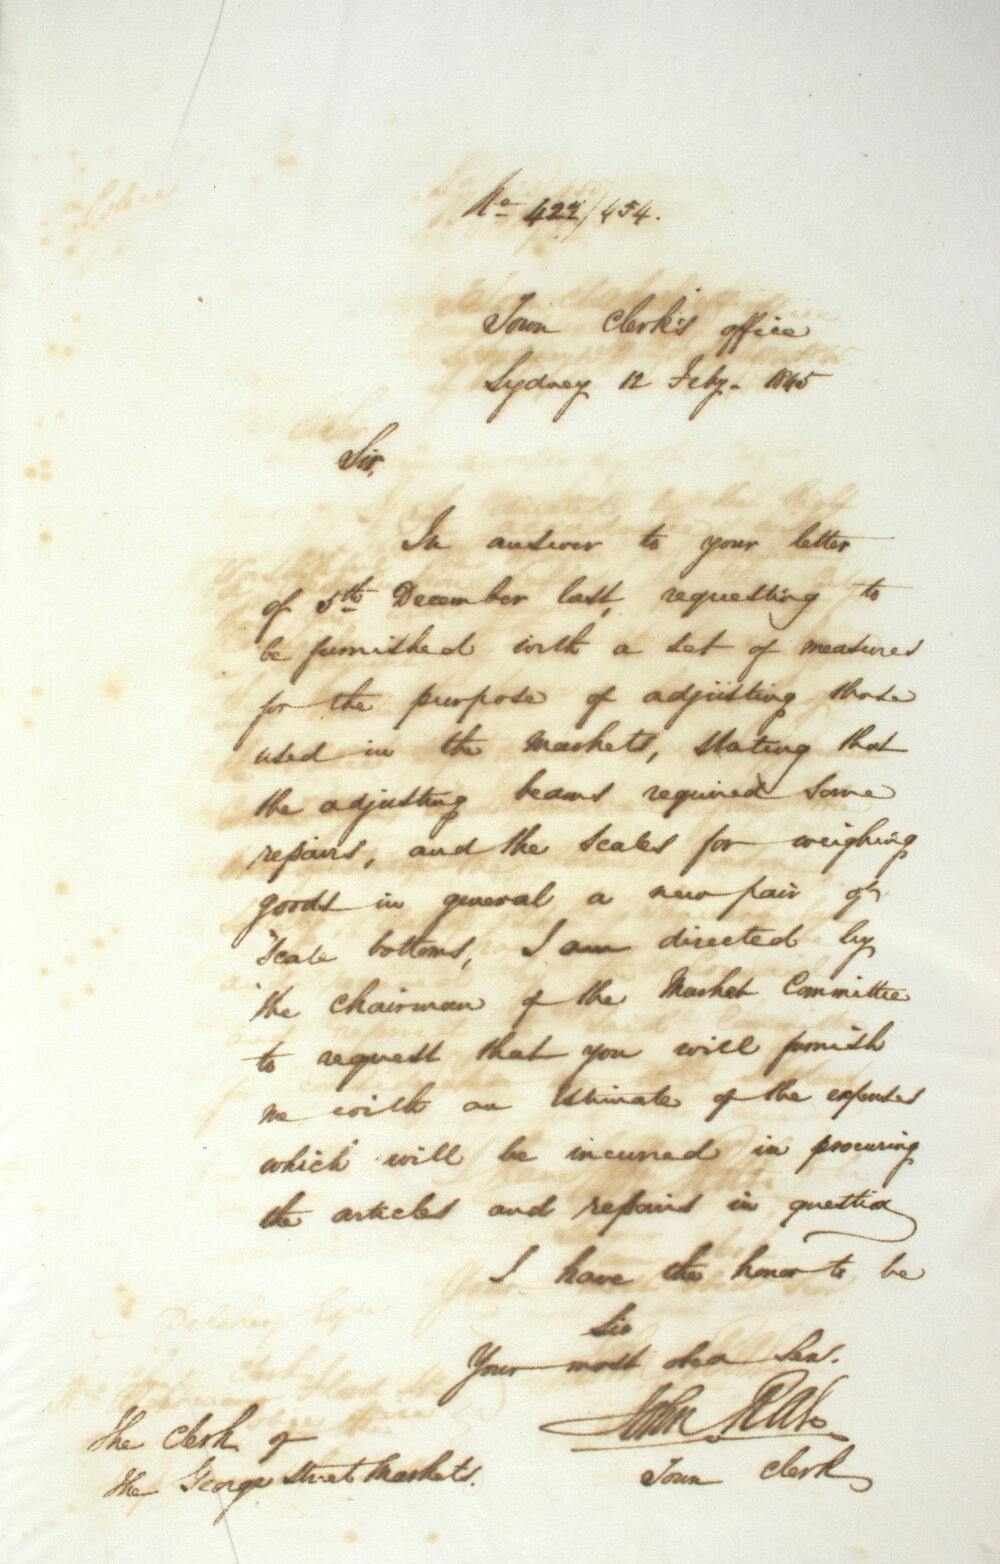 No 422/454.
Town Clerk's office
Sydney 12 Feby. 1845
Sir,
In answer to your letter
of 5th December last, requesting to
be furnished with a set of measures
for the purpose of adjusting those
used in the Markets, stating that
the adjusting beams required some
repairs, and the scales for weighing
goods in general a new pair of
scale bottoms, I am directed by
the Chairman of the Market Committee
to request that you will furnish
me with an Estimate of the expenses
which will be incurred in procuring
the articles and repairs in question
I have the honor to be
Sir
Your most obed Ser.
John
Town Clerk
The Clerk of
the George Street Markets.